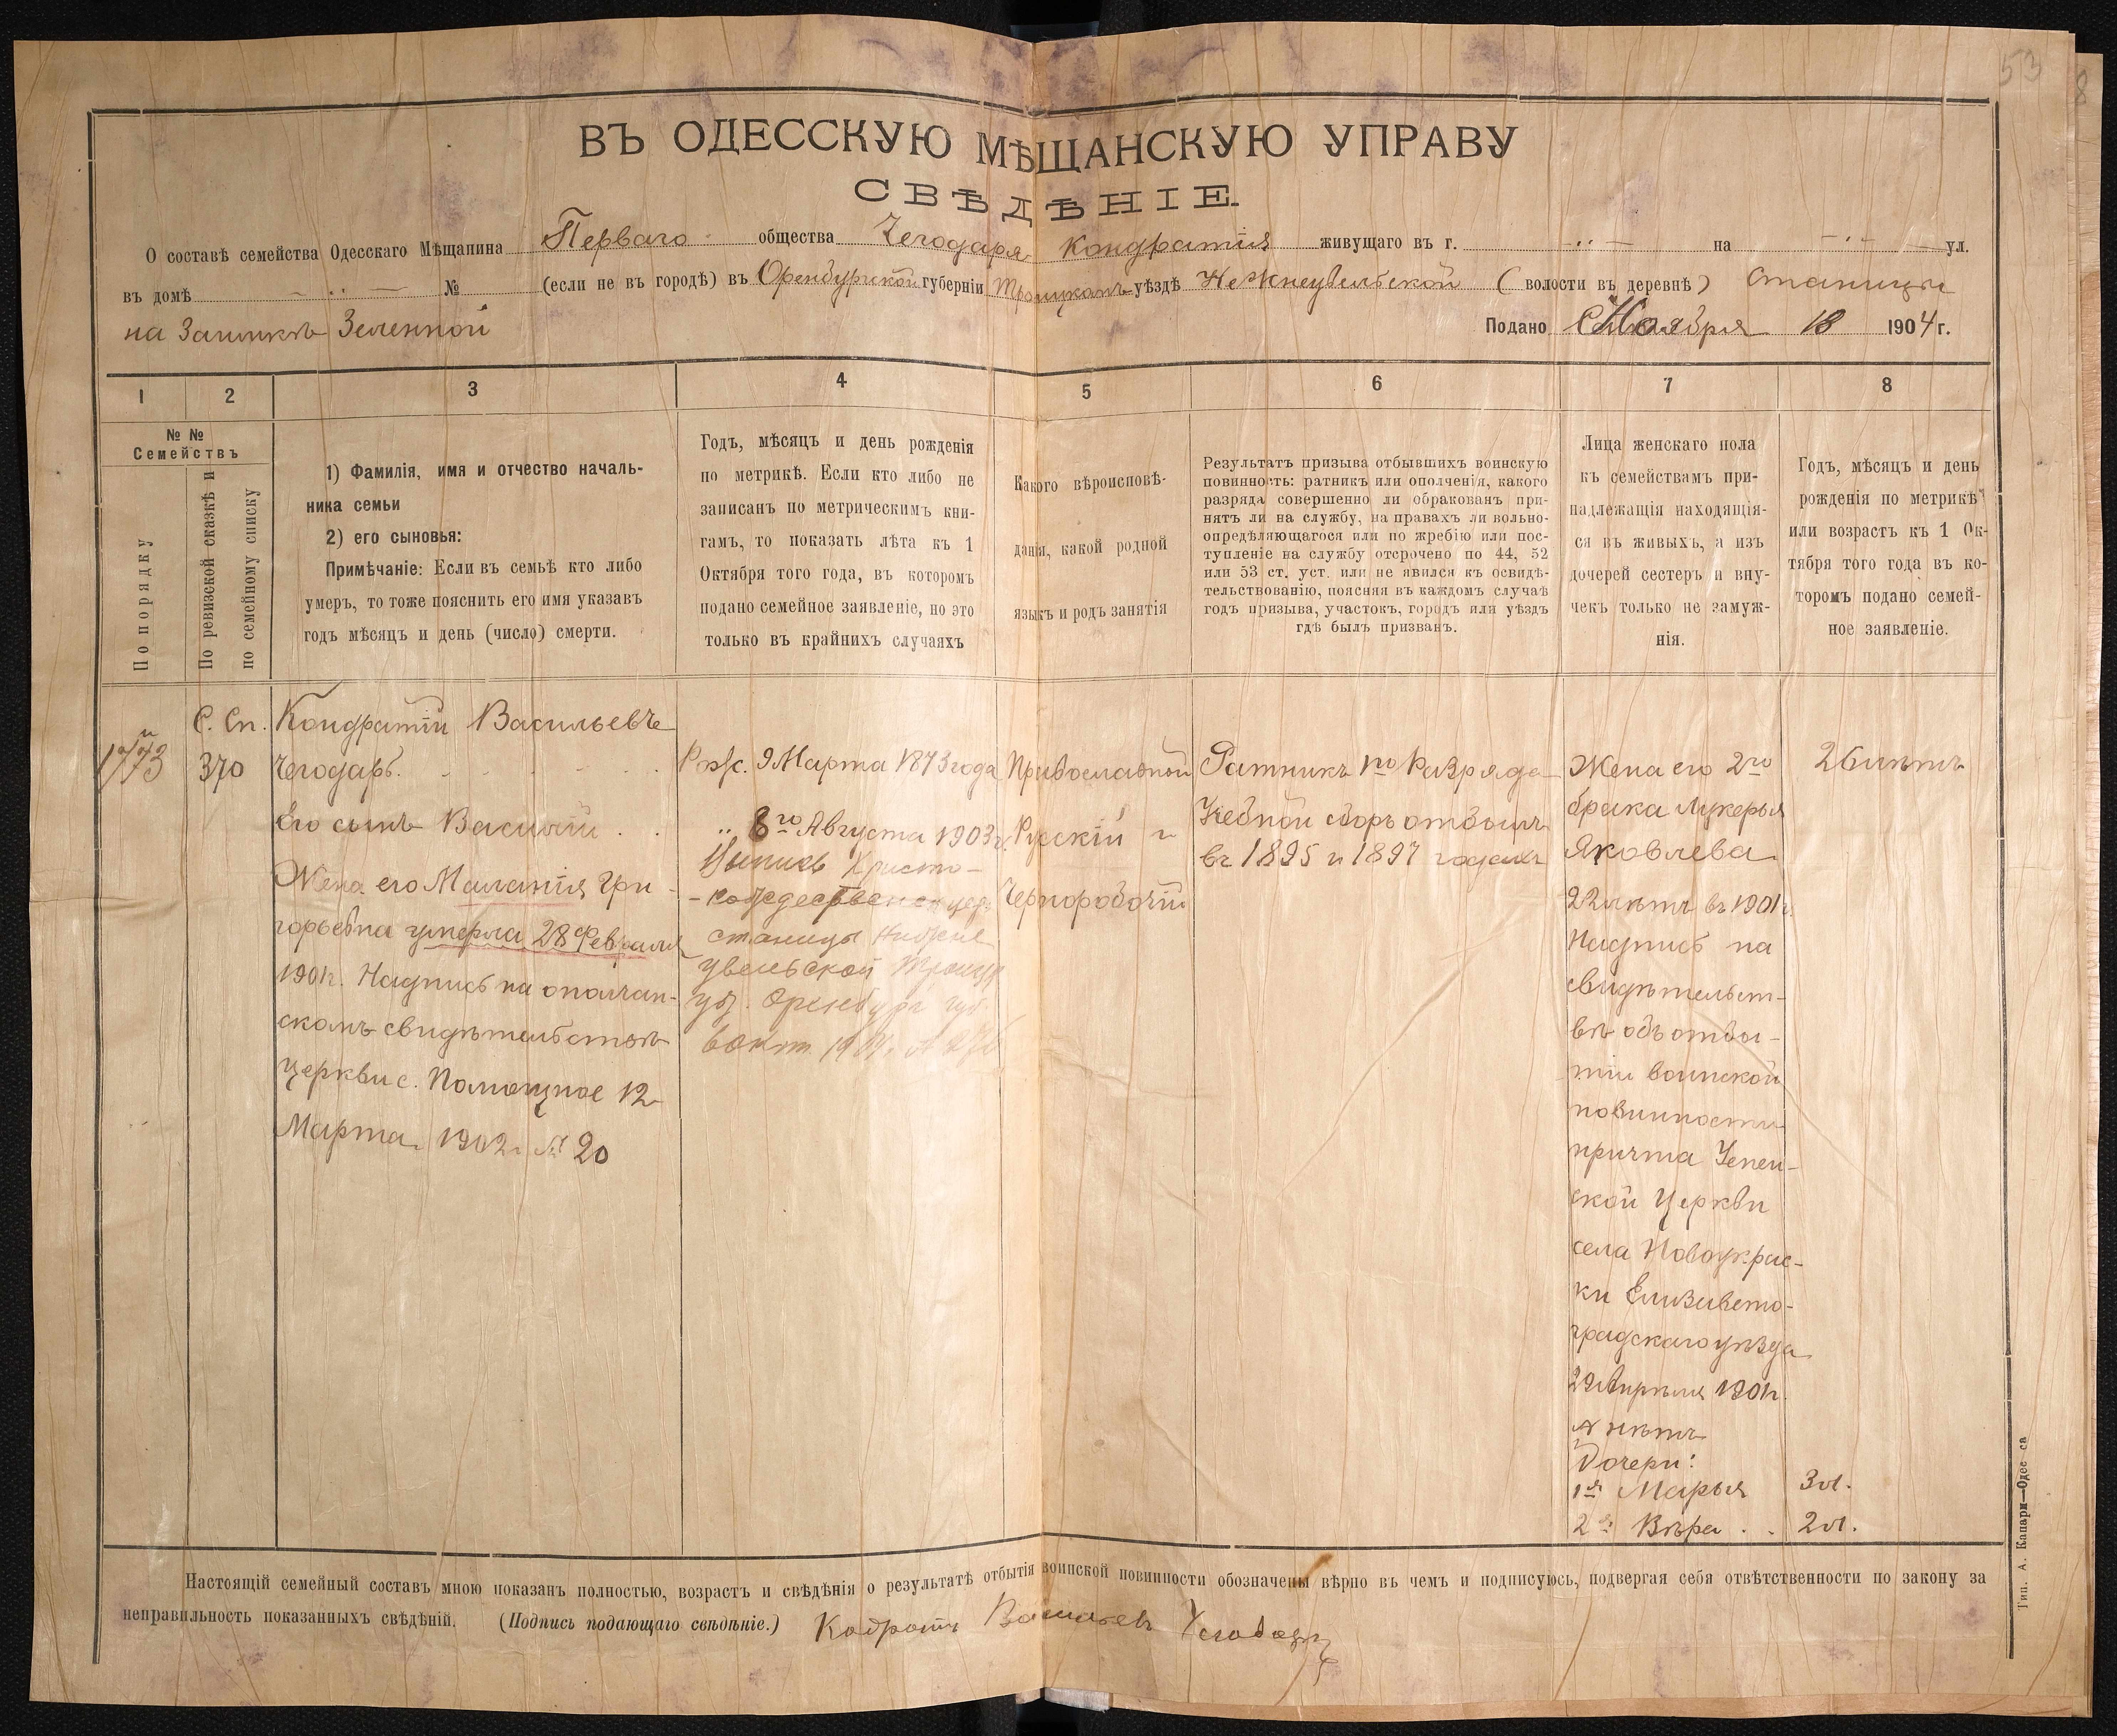 53
8
ВЪ ОДЕССКУЮ МѢЩАНСКУЮ УПРАВУ
СВѢДѢНІЕ.
О составѣ семейства Одесскаго Мѣщанина Перваго общества Чегодаря Кондратія живущаго въ г. на ул.
въ домѣ № (если не въ городѣ) въ Оренбургской губерніи Троицкомъ уѣздѣ Нежнеувельской (волости въ деревнѣ) станицы
на Заимкѣ Зеленной Подано Ноября 18 1904 г.
1 2 3 4 5 6 7 8
№ №
Семействъ
По порядку
По ревизской сказкѣ и
по семейному списку
1) Фамилія, имя и отчество началь-
ника семьи
2) его сыновья:
Примѣчаніе: Если въ семьѣ кто либо
умеръ, то тоже пояснить его имя указавъ
годъ мѣсяцъ и день (число) смерти.
Годъ, мѣсяцъ и день рожденія
по метрикѣ. Если кто либо не
записанъ по метрическимъ кни-
гамъ, то показать лѣта къ 1
Октября того года, въ которомъ
подано семейное заявленіе, но это
только въ крайнихъ случаяхъ
Какого вѣроисповѣ-
данія, какой родной
языкъ и родъ занятія
Результатъ призыва отбывшихъ воинскую
повинность: ратникъ или ополченія, какого
разряда совершенно ли обракованъ при-
нятъ ли на службу, на правахъ ли вольно-
опредѣляющагося или по жребію или пос-
тупленіе на службу отсрочено по 44, 52
или 53 ст. уст. или не явился къ освидѣ-
тельствованію, поясняя въ каждомъ случаѣ
годъ призыва, участокъ, городъ или уѣздъ
гдѣ былъ призванъ.
Лица женскаго пола
къ семействамъ при-
надлежащія находящія-
ся въ живыхъ, а изъ
дочерей сестеръ и вну-
чекъ только не замуж-
нія.
Годъ, мѣсяцъ и день
рожденія по метрикѣ
или возрастъ къ 1 Ок-
тября того года въ ко-
торомъ подано семей-
ное заявленіе.
1773
С. Сп.
370
Кондратій Васильевъ
Чегодарь.
Его сынъ Василій . .
Жена его Маланія Гри-
горьевна умерла 28 Февраля
1901 г. Надпись на ополчен-
скомъ свидѣтельствѣ
церкви с. Помощное 12
Марта 1902 г № 20
Рожд. 9 Марта 1873 года
" 8го Августа 1903 г.
Выпись Христо-
-рождественск цер.
станицы Нижне
увельской Троицк
уѣз. Оренбург губ.
Православной
Русскій и
Чернорабочій
Ратникъ 1го Разряда
Учебной сборъ отбылъ
въ 1895 и 1897 годахъ
Жена его 2го
брака Лукерья
Яковлева
22 лѣтъ въ 1901 г.
Надпись на
свидѣтельст-
вѣ объ отбы-
тіи воинской
повинности
причта Успен-
ской Церкви
села Новоукраин-
ки Елизавето-
градскаго уѣзда
29 Апрѣля 1901 г.
№ нѣтъ
Дочери:
1я Марья
2я Вѣра . .
26 лѣтъ
3 л.
2 л.
Настоящій семейный составъ мною показанъ полностью, возрастъ и свѣдѣнія о результатѣ отбытія воинской повинности обозначены вѣрно въ чемъ и подписуюсь, подвергая себя отвѣтственности по закону за
неправильность показанныхъ свѣдѣній. (Подпись подающаго свѣдѣніе.) Кодратъ Васильевъ Чегодарь
Тип. А. Капари—Одесса